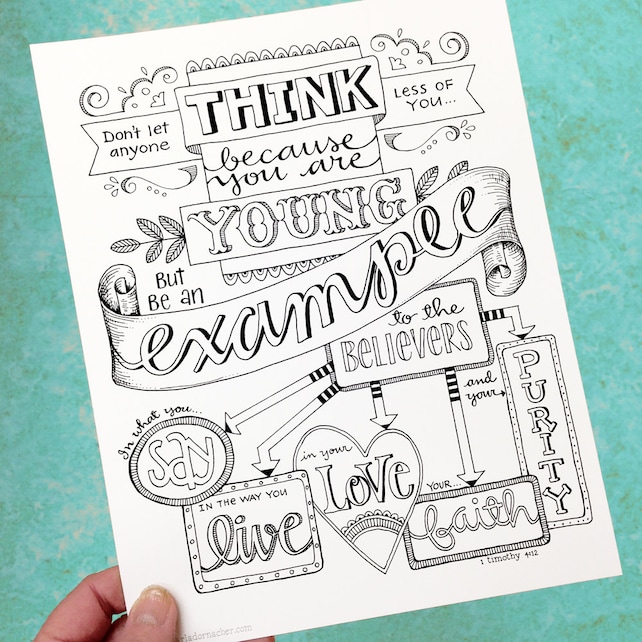 Don't let
anyone
THINK
less of
you...
because
you are
YOUNG
But
Be an
example
to the
BELIEVERS
In what you...
SAY
IN THE WAY YOU
live
in your
LOVE
YOUR...
faith
and
your
PURITY
1 timothy 4:12